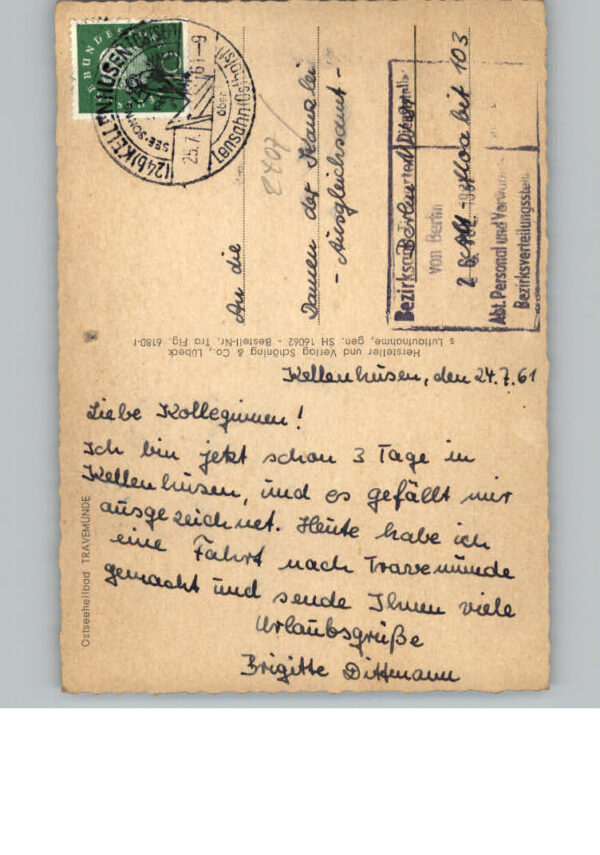 Kellenhusen, den 24.7.61
Liebe Kolleginnen!
Ich bin jetzt schon 3 Tage in
Kellenhusen, und es gefällt mir
ausgezeichnet. Heute habe ich
eine Fahrt nach Travemünde
gemacht und sende Ihnen viele
Urlaubsgrüße
Brigitte Dittmann
An die
Damen der Kanzlei
- Ausgleichsamt -
Berlin
Moabit 103
2707
Bezirks
von Berlin
Abt. Personal und Verwaltung
Bezirksverteilungsstelle
(24b) KELLENHUSEN
über Neustadt (Holst)
25.7.61-9
10
Hersteller und Verlag Schöning & Co., Lübeck
s Luftaufnahme, gen. SH 16062 - Bestell-Nr. Tra Flg. 6180-f
Ostseeheilbad TRAVEMÜNDE